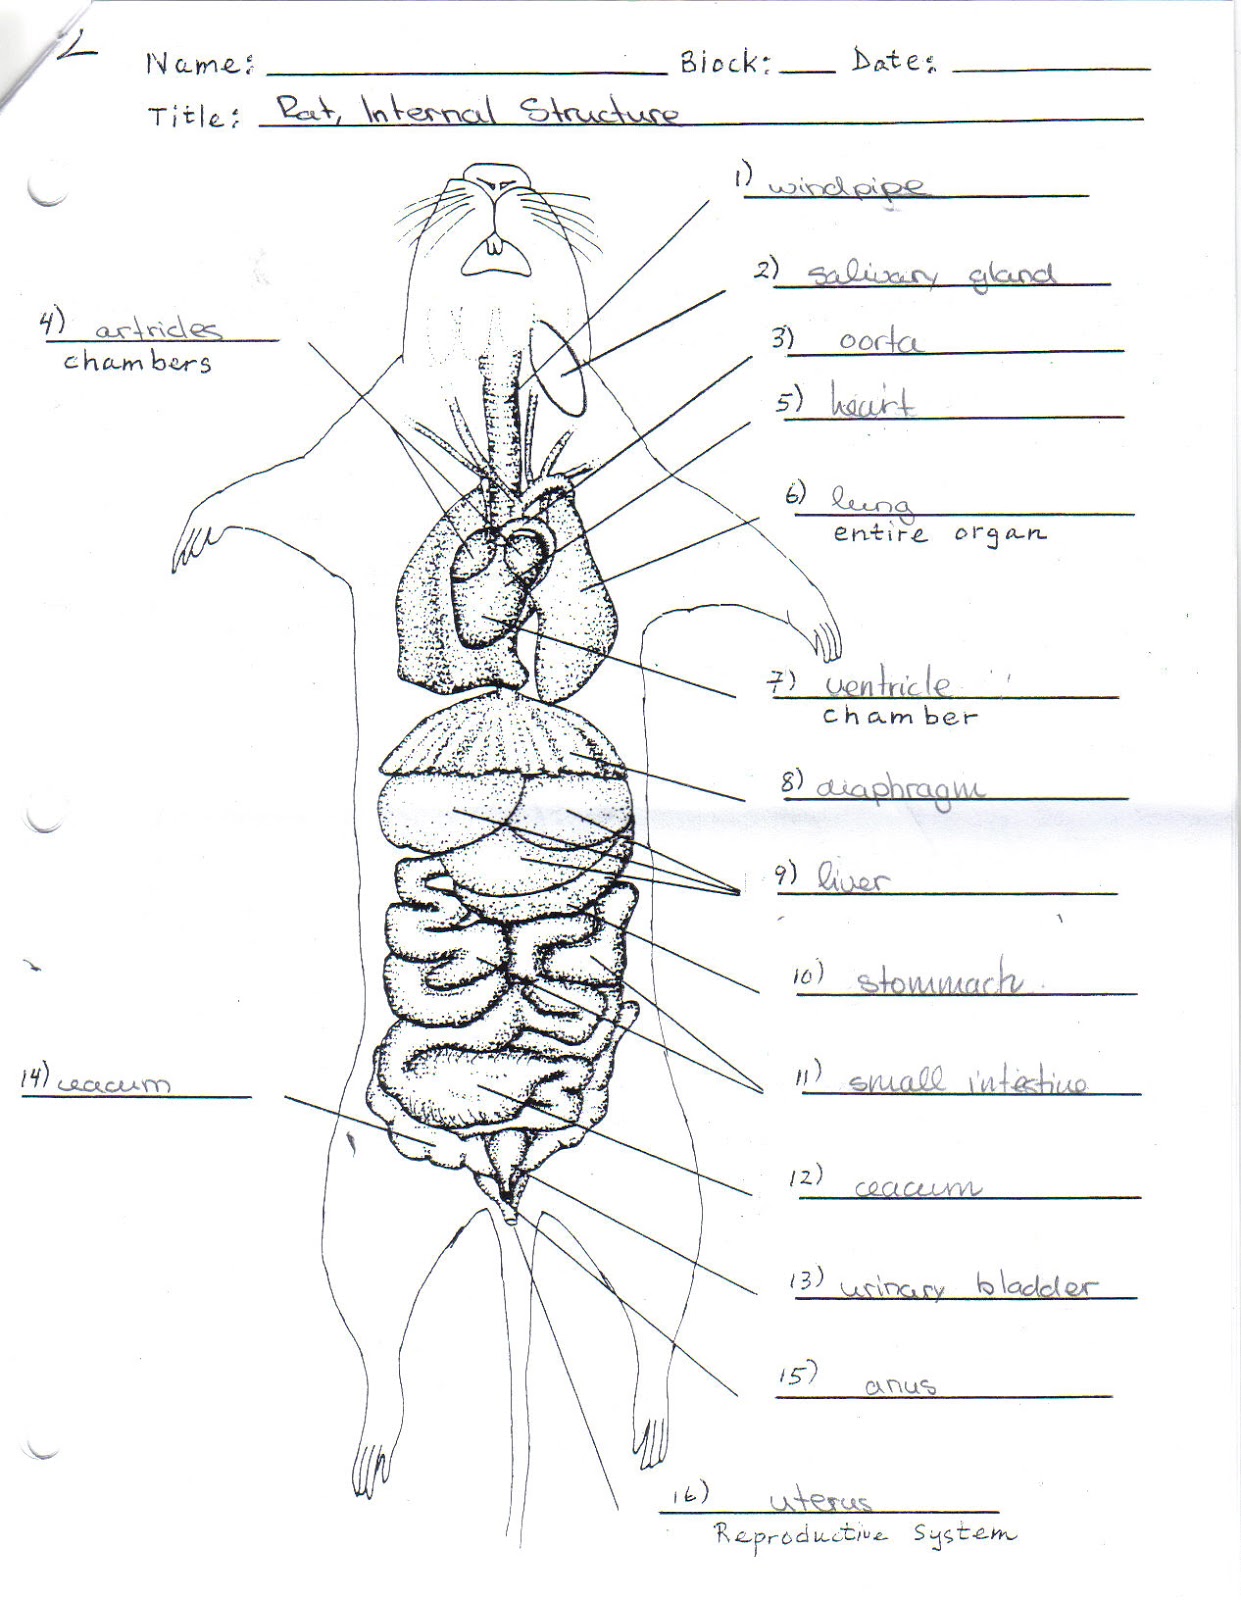 Name: Block: Date:
Title: Rat, Internal Structure
1) windpipe
2) salivary gland
3) oorta
4) artricles
chambers
5) heart
6) lung
entire organ
7) ventricle
chamber
8) diaphragm
9) liver
10) stommach
11) small intestine
12) ceacum
13) urinary bladder
14) ceacum
15) anus
16) uterus
Reproductive System